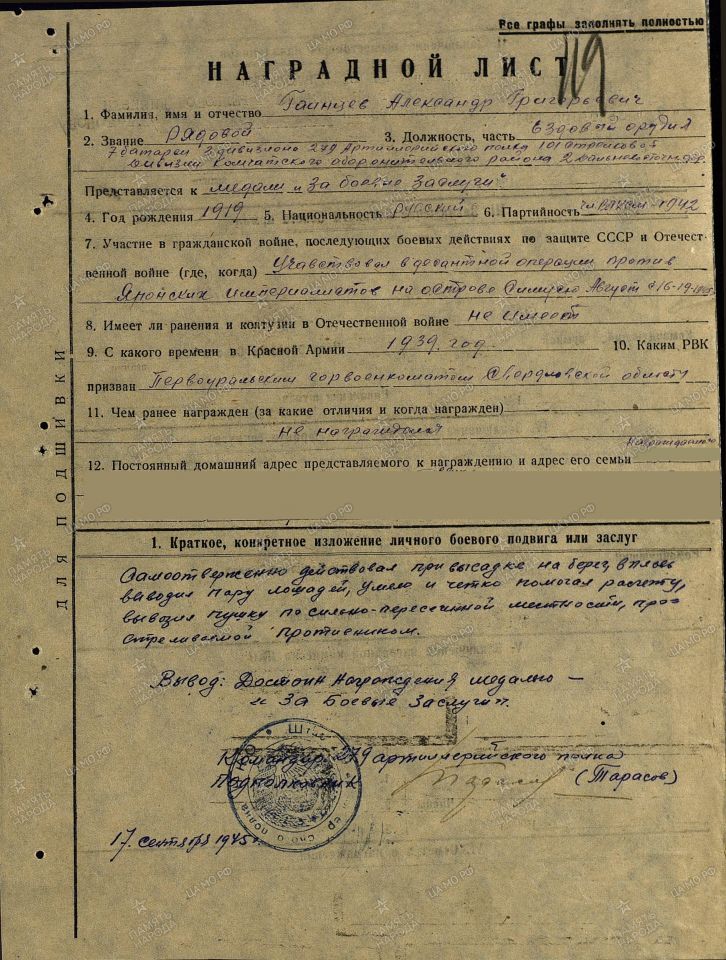 Все графы заполнять полностью
119
НАГРАДНОЙ ЛИСТ
1. Фамилия, имя и отчество Гаинцев Александр Григорьевич
2. Звание рядовой 3. Должность, часть ездовой орудия
7 батареи 2 дивизиона 279 Артиллерийского полка 101 стрелковой
дивизии Камчатского оборонительного района 2
Представляется к медали „За боевые Заслуги"
4. Год рождения 1919 5. Национальность русский 6. Партийность чл. ВЛКСМ 1942
7. Участие в гражданской войне, последующих боевых действиях по защите СССР и Отечест-
венной войне (где, когда) Учавствовал в десантной операции против
Японских империалистов на острове Август с 16-19-1945
8. Имеет ли ранения и контузии в Отечественной войне не имеет
9. С какого времени в Красной Армии 1939 год. 10. Каким РВК
призван Первоуральским горвоенкоматом Свердловской области
11. Чем ранее награжден (за какие отличия и когда награжден)
не награждался
12. Постоянный домашний адрес представляемого к награждению и адрес его семьи
ДЛЯ ПОДШИВКИ
1. Краткое, конкретное изложение личного боевого подвига или заслуг
Самоотверженно действовал при высадке на берег, вплавь
выводил пару лошадей, умело и четко помогал расчету,
вывозил пушку по сильно-пересечённой местности, про-
стреливаемой противником.
Вывод: Достоин Награждения медалью –
„За Боевые Заслуги".
Командир 279 артиллерийского полка
Подполковник (Тарасов)
17 сентября 1945 г.
ПАМЯТЬ НАРОДА
ЦАМО.РФ